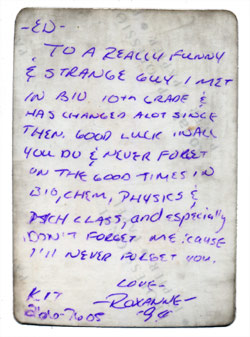 -ED-
TO A REALLY FUNNY
& STRANGE GUY I MET
IN BIO 10th GRADE &
HAS CHANGED ALOT SINCE
THEN. GOOD LUCK IN ALL
YOU DO & NEVER FORGET
ON THE GOOD TIMES IN
BIO, CHEM, PHYSICS &
PSCH CLASS, and especially
DON'T FORGET ME 'CAUSE
I'll NEVER FORGET YOU.
LOVE-
-ROXANNE-
KIT